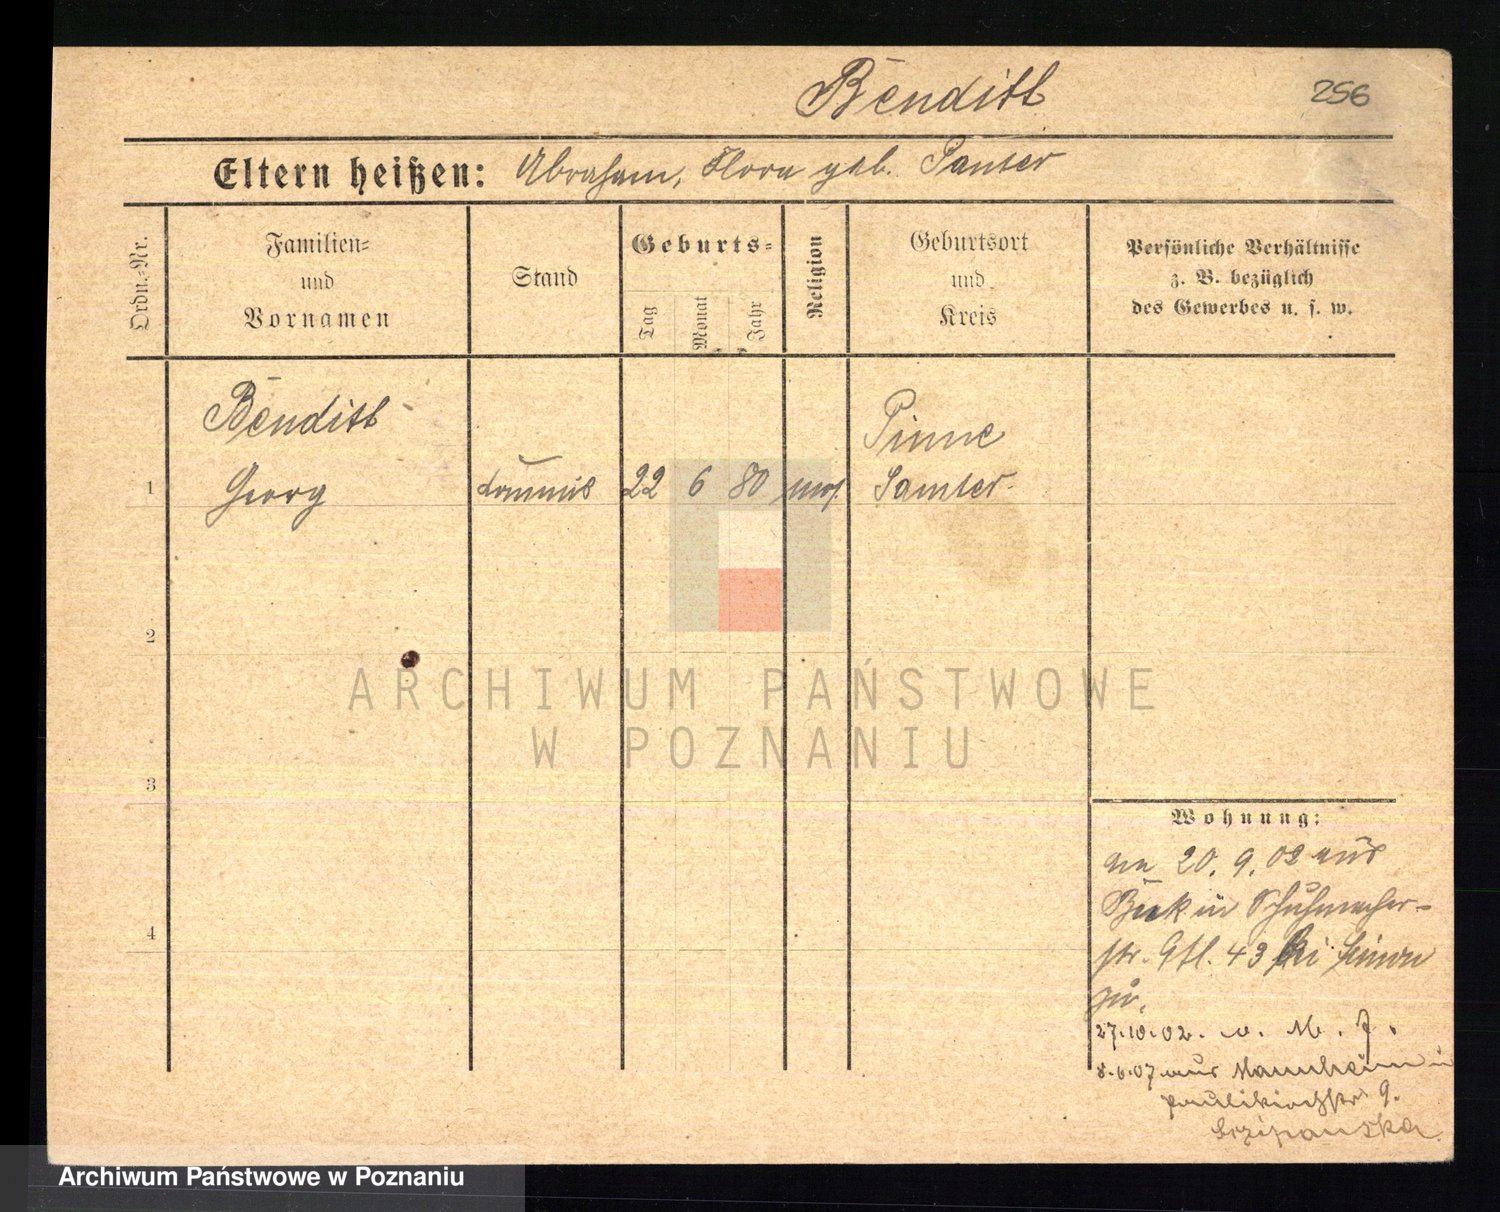 Benditt
256
Eltern heißen: Abraham, Flora geb. Panter
Ordn.-Nr.
Familien-
und
Vornamen
Stand
Geburts-
Tag
Monat
Jahr
Religion
Geburtsort
und
Kreis
Persönliche Verhältnisse
z. B. bezüglich
des Gewerbes u. s. w.
Benditt
Pinne
1 Georg Commis 22 6 80 mos. Samter
2
3
4
Wohnung:
am 20. 9. 02 aus
in Schuhmacher-
str. 43 bei Simon
zu.
27.10.02. n. M. J.
8.6.07 aus Mannheim
Paulikirchstr 9.
Szczepanska
ARCHIWUM PAŃSTWOWE
W POZNANIU
Archiwum Państwowe w Poznaniu